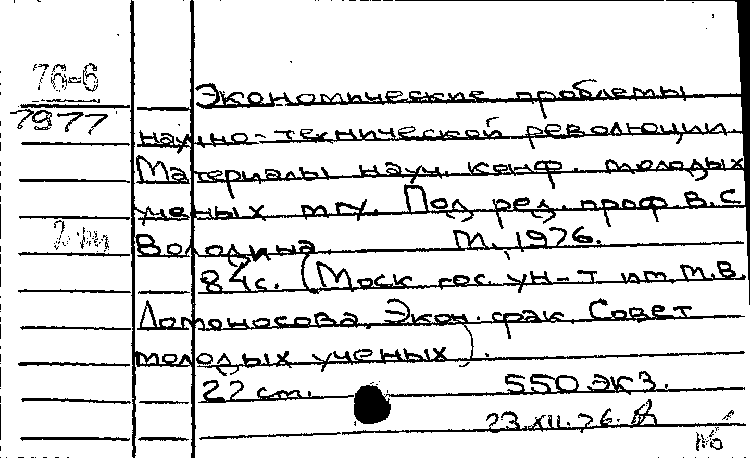 76-6
7977
Экономические проблемы
научно-технической революции.
Материалы науч. конф. молодых
ученых МГУ. Под ред. проф. В.С.
Володина М., 1976.
84с. (Моск. гос. ун-т им. М.В.
Ломоносова. Экон. фак. Совет
молодых ученых).
22 см. 550 экз.
23.XII.76.